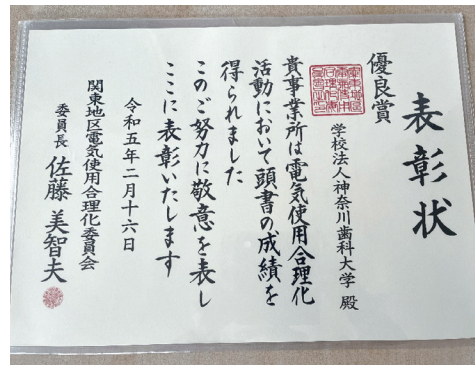 表彰状
優良賞
学校法人神奈川歯科大学 殿
貴事業所は電気使用合理化
活動において頭書の成績を
得られました
このご努力に敬意を表し
ここに表彰いたします
令和五年二月十六日
関東地区電気使用合理化委員会
委員長 佐藤 美智夫